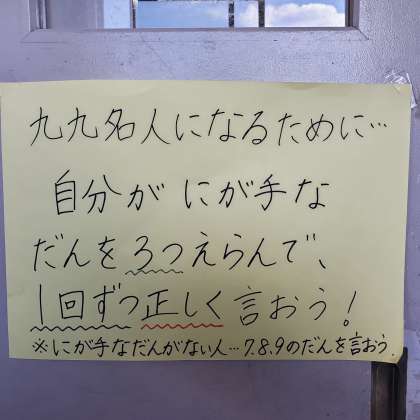 九九名人になるために…
自分がにが手な
だんを3つえらんで、
1回ずつ正しく言おう!
※にが手なだんがない人…7.8.9のだんを言おう.